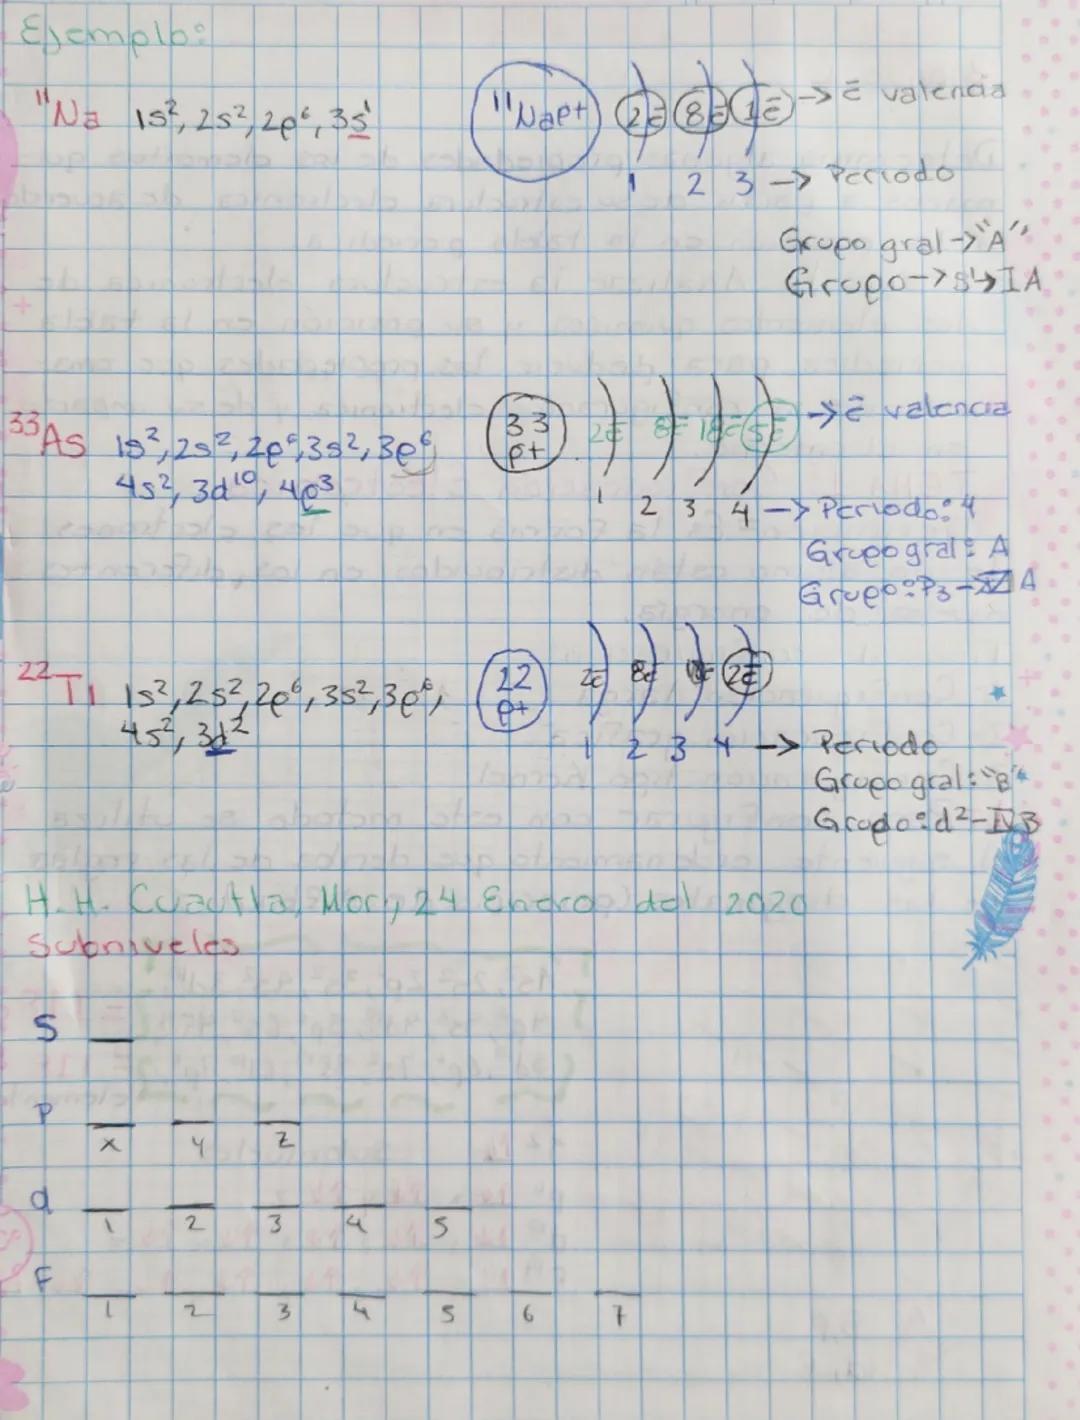 Ejemplo:
¹¹Na 1s², 2s², 2p⁶, 3s¹
¹¹Na p+ 2ē 8ē 1ē → ē valencia
1 2 3 → Periodo
Grupo gral → "A"
Grupo → s¹ → IA
³³As 1s², 2s², 2p⁶, 3s², 3p⁶
4s², 3d¹⁰, 4p³
33 p+ 2ē 8ē 18ē 5ē → ē valencia
1 2 3 4 → Periodo: 4
Grupo gral: A
Grupo: P3 - VA
²²Ti 1s², 2s², 2p⁶, 3s², 3p⁶,
4s², 3d²
22 p+ 2ē 8ē 2ē
1 2 3 4 → Periodo
Grupo gral: "B"
Grupo: d² - IVB
H.H. Cuautla, Mor, 24 Enero del 2020
Subniveles
S
P
x y z
d
1 2 3 4 5
F
1 2 3 4 5 6 7